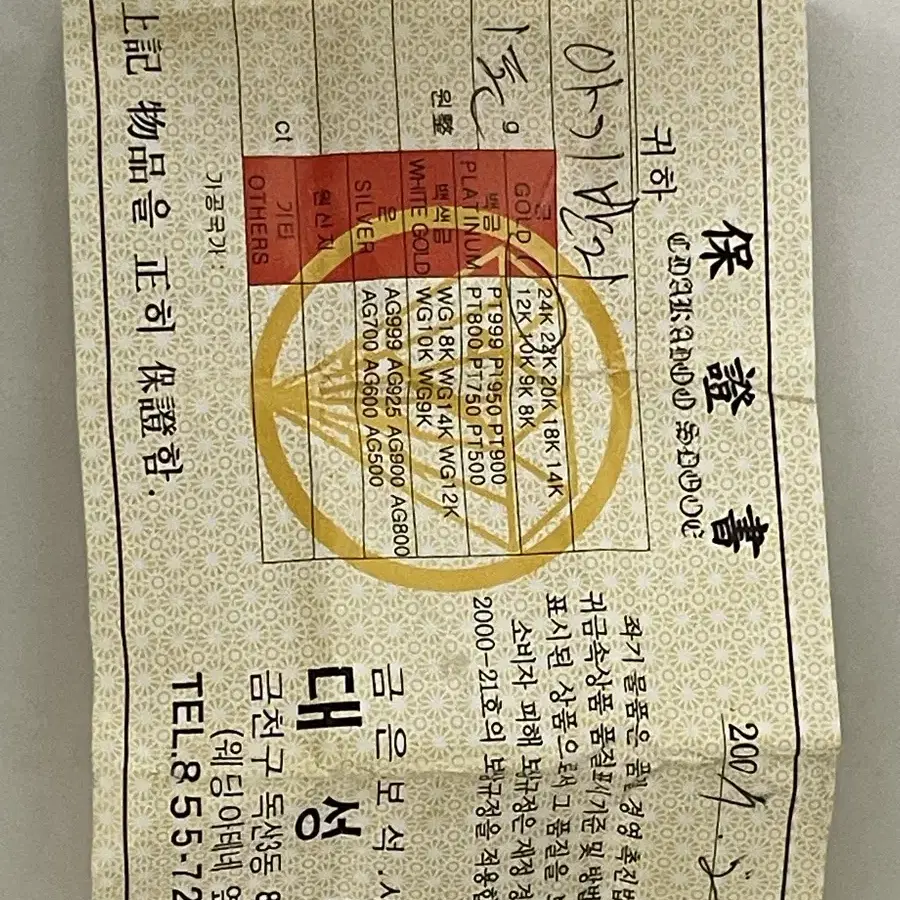 保證書
귀하
아기반지
1돈 g
원整
ct
금 GOLD
24K 22K 20K 18K 14K
12K 10K 9K 8K
백금 PLATINUM
PT999 PT950 PT900
PT800 PT750 PT500
백색금 WHITE GOLD
WG18K WG14K WG12K
WG10K WG9K
은 SILVER
AG999 AG925 AG900 AG800
AG700 AG600 AG500
원산지
기타 OTHERS
가공국가 :
上記 物品을 正히 保證함.
200
좌기 물품은 품질 경영 촉진법
귀금속상품 품질표시기준 및 방법
표시된 상품으로써 그 품질을
소비자 피해 보상규정은 재정 경
2000-21호의 보상규정을 적용함
금은보석.시
대성
금천구 독산3동 8
(웨딩아테네 옆
TEL.855-72